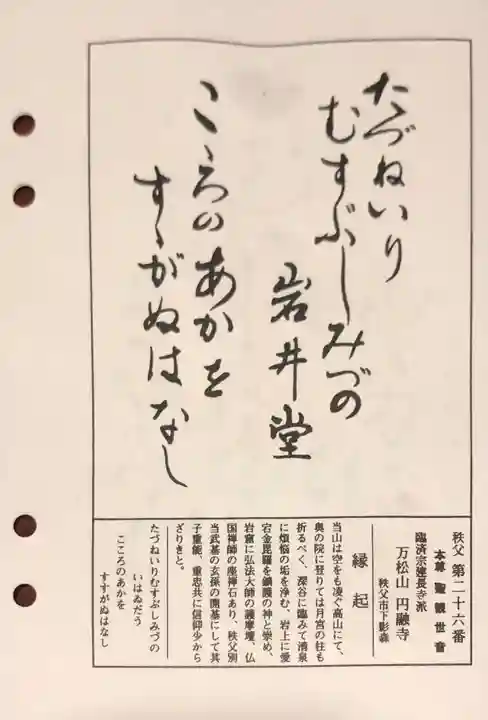 たづねいり
むすぶしみづの
岩井堂
こゝろのあかを
すゝがぬはなし
秩父 第二十六番
本尊 聖観世音
臨済宗建長寺派
万松山 円融寺
秩父市下影森
縁起
当山は空をも凌ぐ高山にて、
奥の院に登りては月宮の桂も
折るべく、深谷に臨みて清泉
に煩悩の垢を浄む、岩上に愛
宕金毘羅を鎮護の神と崇め、
岩窟に弘法大師の護摩壇、仏
国禅師の座禅石あり、秩父別
当武基の玄孫の開基にして其
子重能、重忠共に信仰少から
ざりきと。
たづねいりむすぶしみづの
いはゐだう
こころのあかを
すすがぬはなし